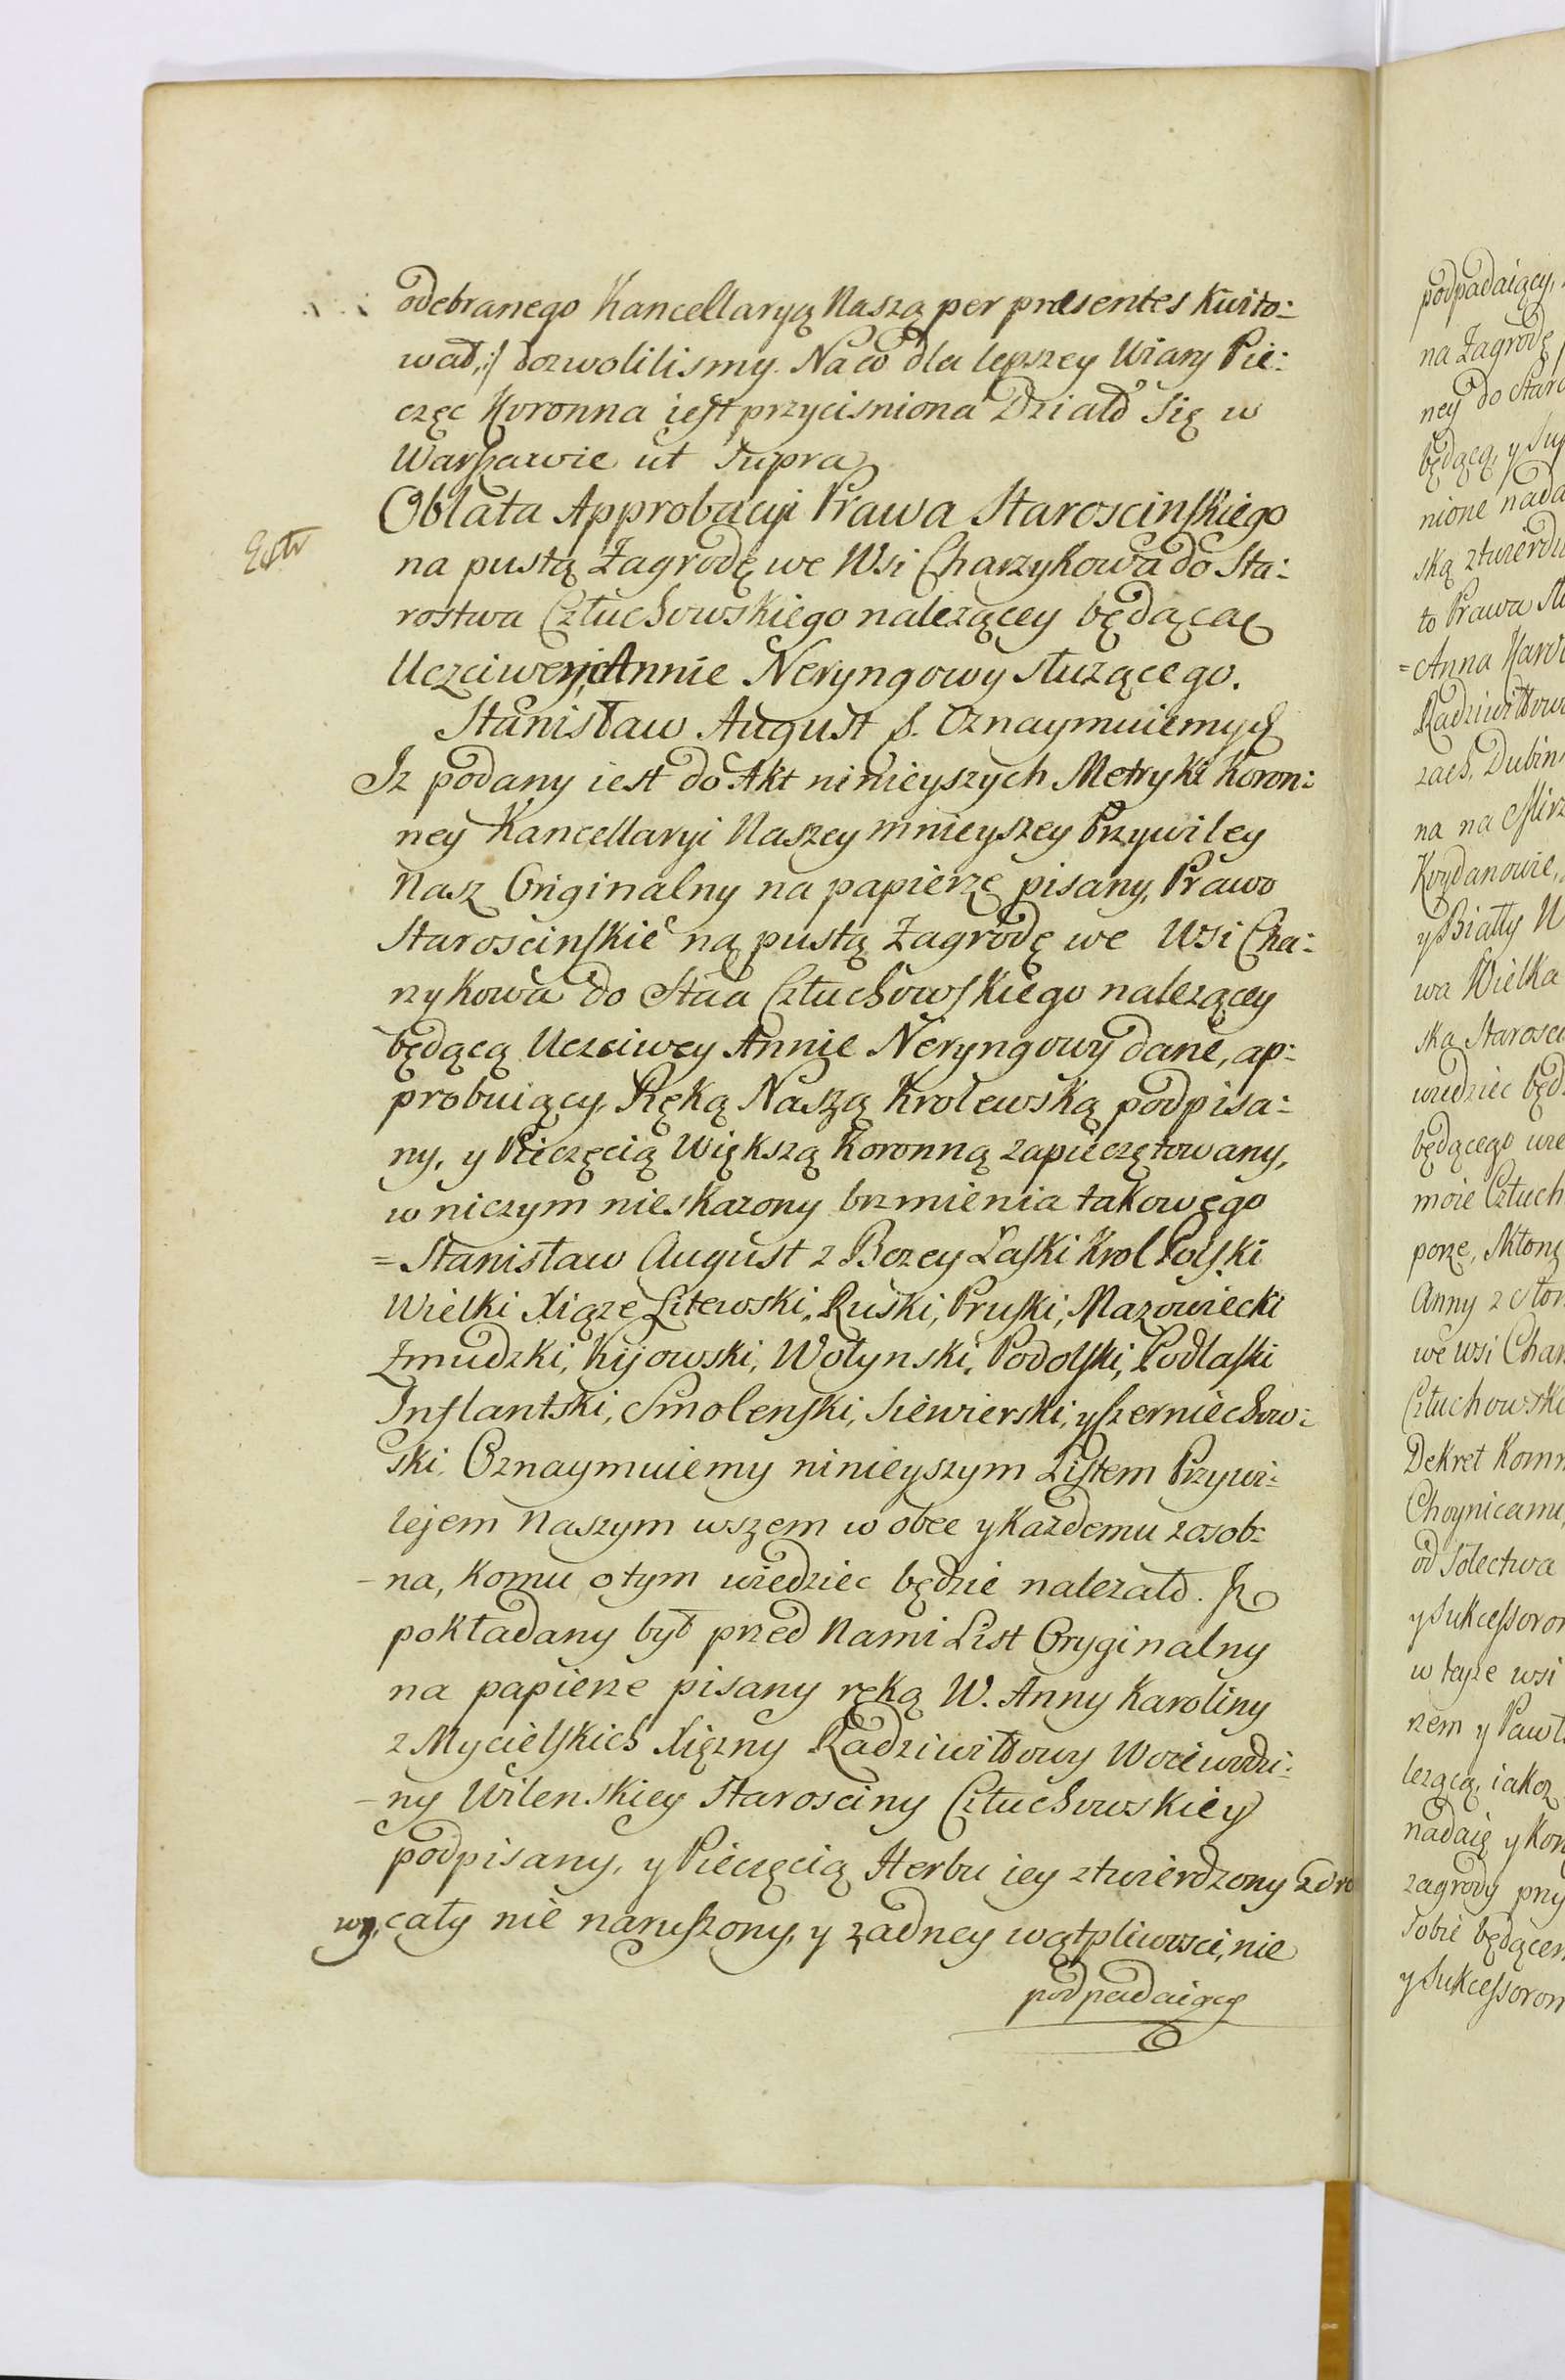 odebranego Kancellaryą Naszą per præsentes Kwito:
wał,:/ dozwolilismy. Na co dla lepszey Wiary Pie:
częc Koronna iest przycisniona Działo Się w
Warszawie ut Supra
Extr
Oblata Approbacyi Prawa Staroscinskiego
na pustą Zagrodę we Wsi Charzykowa do Sta:
rostwa Człuchowskiego nalezącey będącą
Uczciwey Annie Neryngowy słuzącego.
Stanisław August &. Oznaymuiemy &
Iz podany iest do Akt ninieyszych Metryki Koron:
ney Kancellaryi Naszey mnieyszey Przywiley
Nasz Originalny na papierze pisany, Prawo
Staroscinskie na pustą Zagrodę we Wsi Cha:
rzykowa do Staa Człuchowskiego nalezącey
będącą Uczciwey Annie Neryngowy dane, ap:
probuiący, Ręką Naszą Krolewską podpisa:
ny, y Pieczęcią Większą Koronną zapieczętowany,
w niczym nieskazony brzmienia takowego
= Stanisław August z Bozey Łaski Krol Polski
Wielki Xiąze Litewski, Ruski, Pruski, Mazowiecki
Zmudzki, Kijowski, Wołynski, Podolski, Podlaski
Inflantski, Smolenski, Siewierski, y Czerniechow:
ski. Oznaymuiemy ninieyszym Listem Przywi:
lejem Naszym wszem w obec y Kazdemu zosob:
-na, Komu o tym wiedziec będzie nalezało. Iz
pokładany był przed Nami List Oryginalny
na papierze pisany ręką W. Anny Karoliny
z Mycielskich Xięzny Radziwiłłowy Woiewodzi:
-ny Wilenskiey Starosciny Człuchowskiey
podpisany, y Pieczęcią Herbu iey ztwierdzony zdro
wy, cały nie naruszony, y zadney wątpliwosci, nie
podpadaiący
podpadaiący,
na Zagrodę
ney do Staro
będącą, y Sup
nione nada
ską ztwierdz
to Prawa St
= Anna Karo
Radziwiłłow
zach, Dubin
na na Mirz
Koydanowie,
y Biały
wa Wielka
ska Starosci
wiedziec będ
będącego
moie Człuch
porze, Skłon
Anny z
we wsi Char
Człuchowski
Dekret Komm
Choynicami,
od Solectwa
y Sukcessorom
w teyze wsi
rzem y Pawł
lezącą, iakoz
nadaię y Kon
zagrody przy
sobie będącem
y Sukcessorom